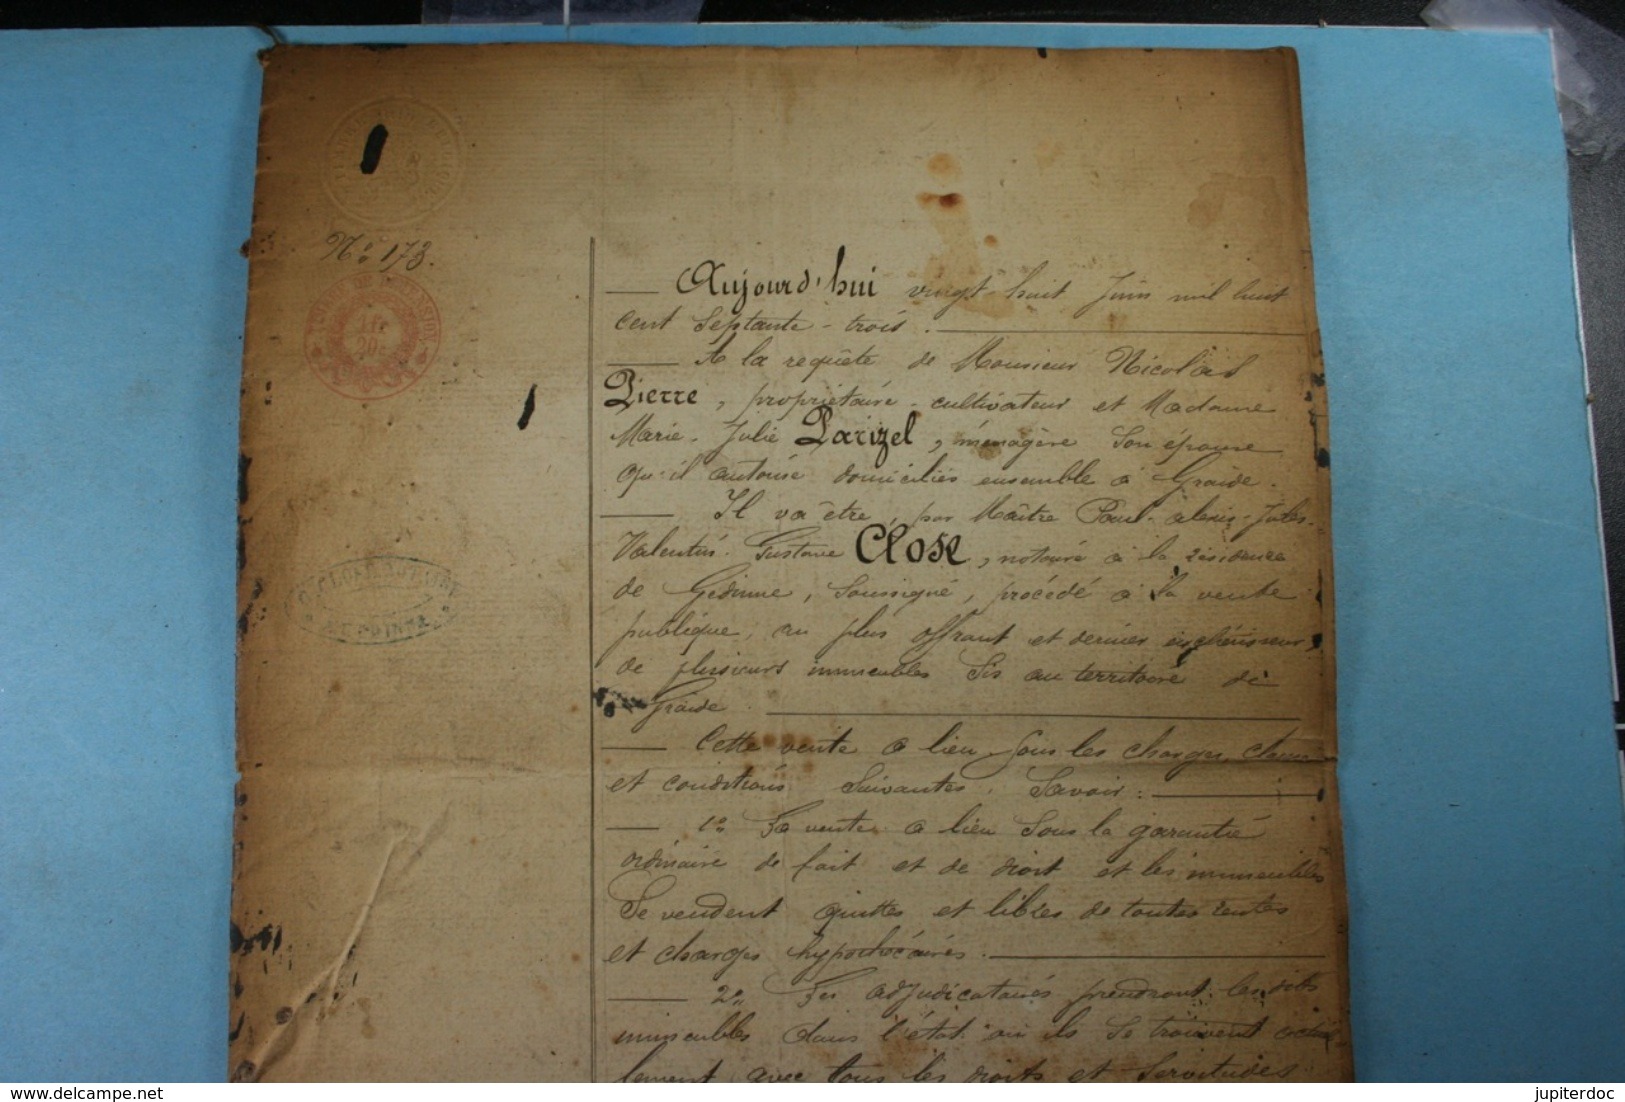 N° 173.
1 fr
20 c
Aujourd'hui vingt-huit Juin mil huit
cent Septante-trois.
A la requête de Monsieur Nicolas
Pierre, propriétaire-cultivateur et Madame
Marie-Julie Parizel, ménagère son épouse
qu'il autorise domiciliés ensemble à Graide.
Il va être, par Maître Paul-alexis-Jules-
Valentin-Gustave Close, notaire à la résidence
de Gedinne, soussigné, procédé à la vente
publique, au plus offrant et dernier enchérisseur,
de plusieurs immeubles sis au territoire de
Graide.
Cette vente a lieu sous les charges, clauses
et conditions suivantes. Savoir:
1° La vente a lieu sous la garantie
ordinaire de fait et de droit et les immeubles
se vendent quittes et libres de toutes rentes
et charges hypothécaires.
2° Les adjudicataires prendront les dits
immeubles dans l'état où ils se trouvent actuel
lement avec tous les droits et servitudes
www.delcampe.net
jupiterdoc